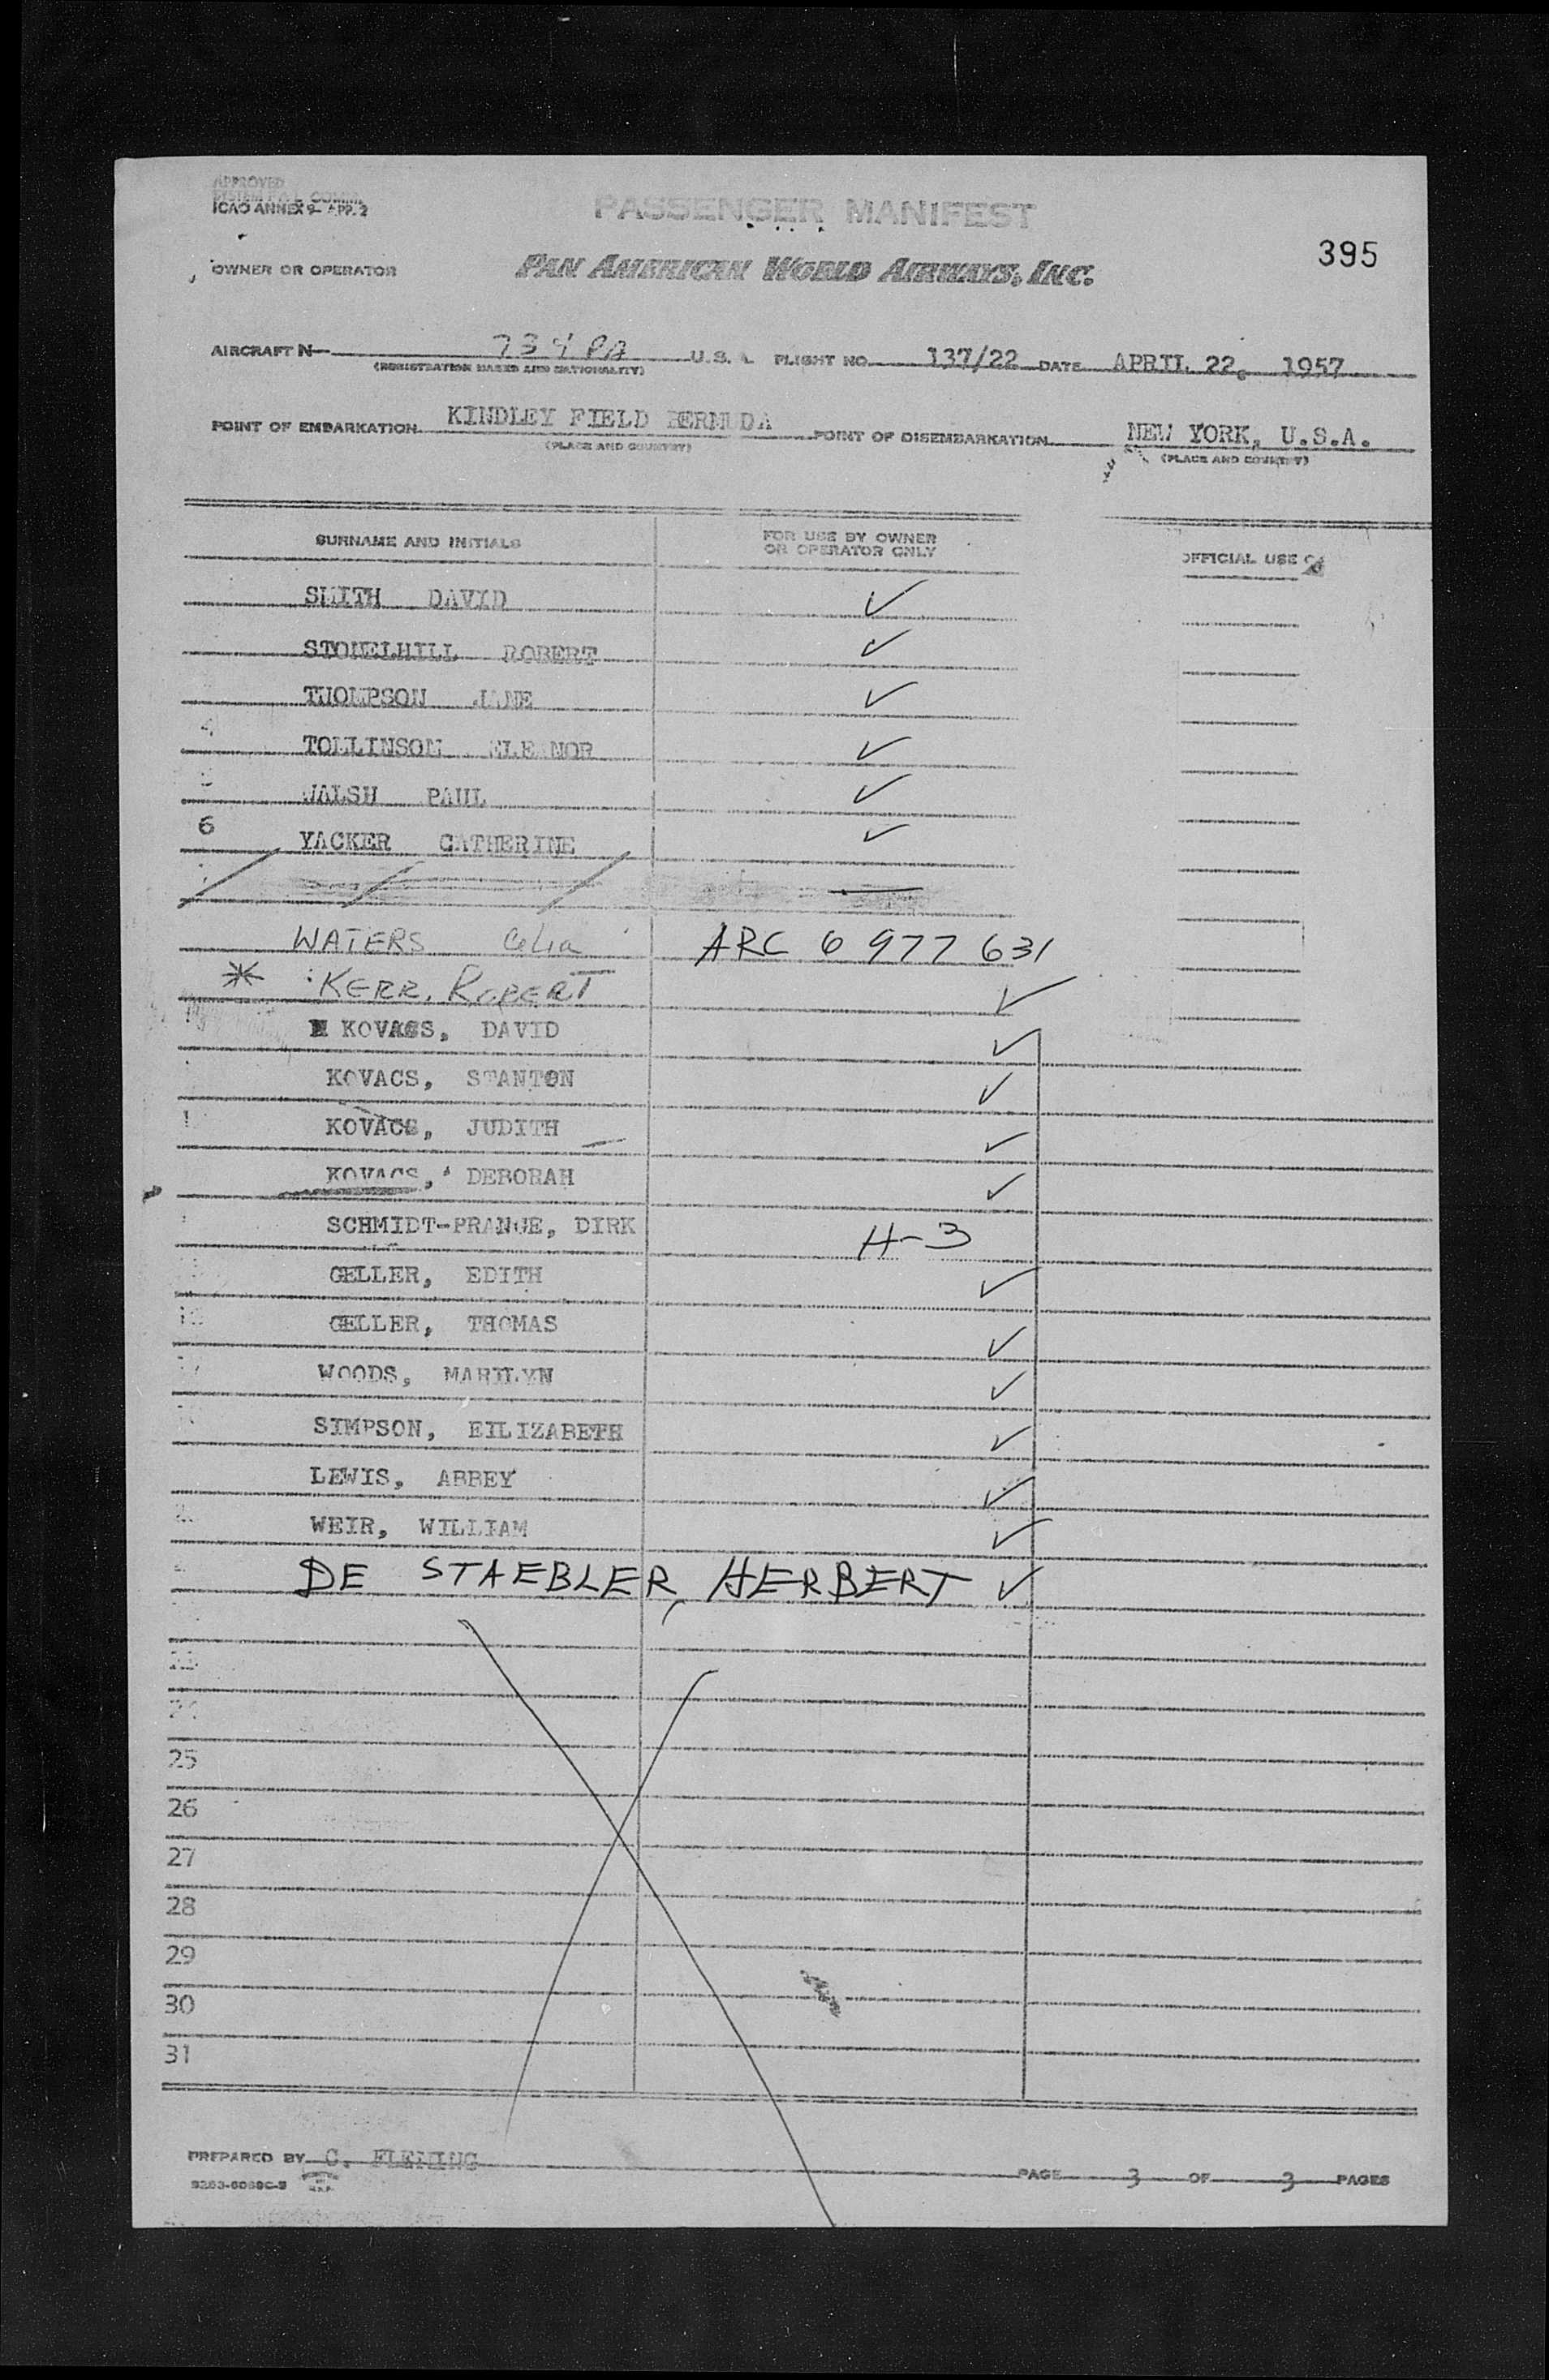 APPROVED
SYSTEM F.A.L. COMM.
ICAO ANNEX 9- APP. 2
PASSENGER MANIFEST
395
OWNER OR OPERATOR PAN AMERICAN WORLD AIRWAYS, INC.
AIRCRAFT N— PA U.S. FLIGHT NO. 137/22 DATE APRIL 22, 1957
(REGISTRATION MARKS AND NATIONALITY)
POINT OF EMBARKATION KINDLEY FIELD BERMUDA POINT OF DISEMBARKATION NEW YORK, U.S.A.
(PLACE AND COUNTRY) (PLACE AND COUNTRY)
SURNAME AND INITIALS FOR USE BY OWNER OR OPERATOR ONLY OFFICIAL USE
SMITH DAVID ✓
STONELHILL ROBERT ✓
THOMPSON JANE ✓
4 TOLLINSON ELEANOR ✓
5 WALSH PAUL ✓
6 YACKER CATHERINE ✓
WATERS Celia ARC 6 977 631
* KERR, ROBERT ✓
KOVACS, DAVID ✓
KOVACS, STANTON ✓
KOVACS, JUDITH ✓
KOVACS, DEBORAH ✓
SCHMIDT-PRANGE, DIRK H-3
GELLER, EDITH ✓
GELLER, THOMAS ✓
WOODS, MARILYN ✓
SIMPSON, EILIZABETH ✓
LEWIS, ABBEY ✓
WEIR, WILLIAM ✓
DE STAEBLER, HERBERT ✓
23
24
25
26
27
28
29
30
31
PREPARED BY C. FLEMING PAGE 3 OF 3 PAGES